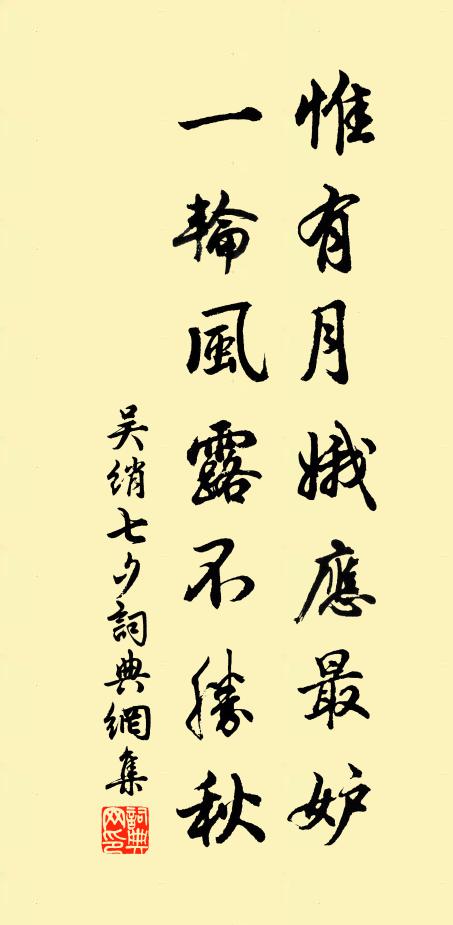 惟有月娥應最妒
一輪風露不勝秋
吴綃七夕詞典網集
詞典网印